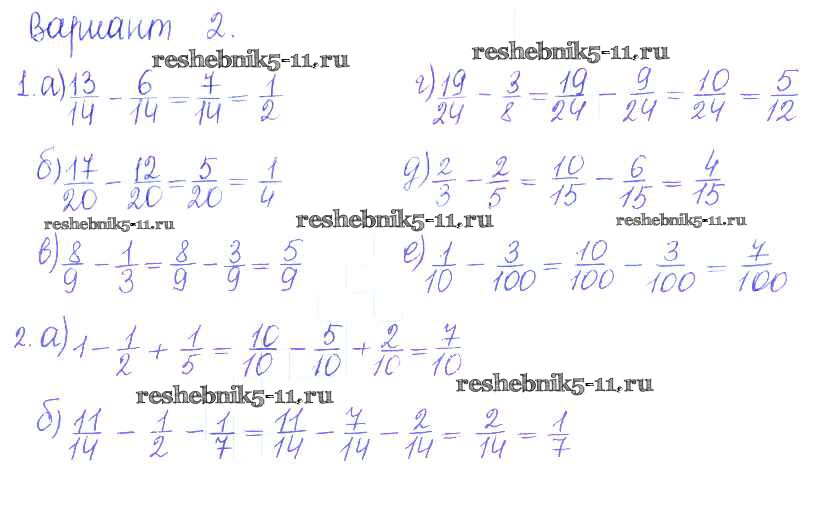 Вариант 2.
reshebnik5-11.ru reshebnik5-11.ru
1. а) 13/14 - 6/14 = 7/14 = 1/2
г) 19/24 - 3/8 = 19/24 - 9/24 = 10/24 = 5/12
б) 17/20 - 12/20 = 5/20 = 1/4
д) 2/3 - 2/5 = 10/15 - 6/15 = 4/15
reshebnik5-11.ru reshebnik5-11.ru reshebnik5-11.ru
в) 8/9 - 1/3 = 8/9 - 3/9 = 5/9
е) 1/10 - 3/100 = 10/100 - 3/100 = 7/100
2. а) 1 - 1/2 + 1/5 = 10/10 - 5/10 + 2/10 = 7/10
reshebnik5-11.ru reshebnik5-11.ru
б) 11/14 - 1/2 - 1/7 = 11/14 - 7/14 - 2/14 = 2/14 = 1/7